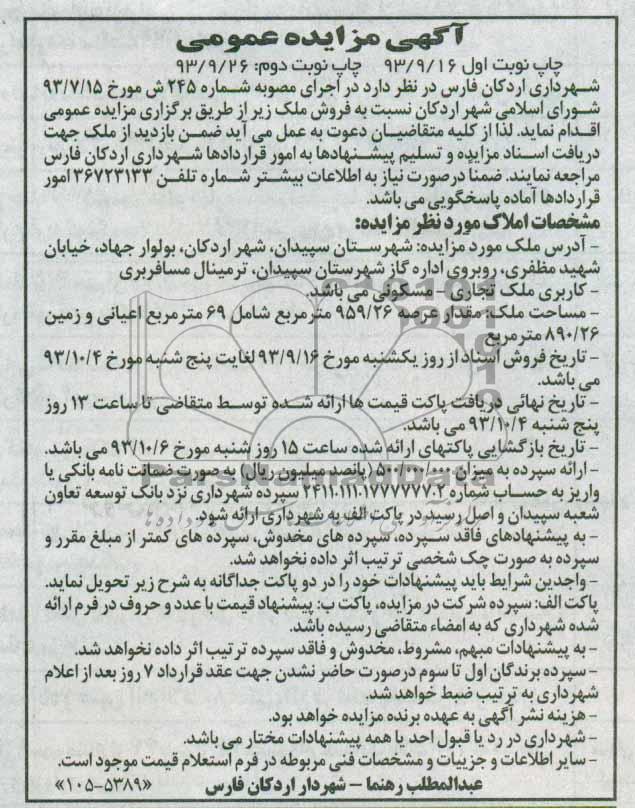 آگهی مزایده عمومی
چاپ نوبت اول ۹۳/۹/۱۶ چاپ نوبت دوم: ۹۳/۹/۲۶
شهرداری اردکان فارس در نظر دارد در اجرای مصوبه شماره ۲۴۵ ش مورخ ۹۳/۷/۱۵
شورای اسلامی شهر اردکان نسبت به فروش ملک زیر از طریق برگزاری مزایده عمومی
اقدام نماید. لذا از کلیه متقاضیان دعوت به عمل می آید ضمن بازدید از ملک جهت
دریافت اسناد مزایده و تسلیم پیشنهادها به امور قراردادها شهرداری اردکان فارس
مراجعه نمایند. ضمناً درصورت نیاز به اطلاعات بیشتر شماره تلفن ۳۶۷۲۳۱۳۳ امور
قراردادها آماده پاسخگویی می باشد.
مشخصات املاک مورد نظر مزایده:
- آدرس ملک مورد مزایده: شهرستان سپیدان، شهر اردکان، بولوار جهاد، خیابان
شهید مظفری، روبروی اداره گاز شهرستان سپیدان، ترمینال مسافربری
- کاربری ملک تجاری - مسکونی می باشد.
- مساحت ملک: مقدار عرصه ۹۵۹/۲۶ متر مربع شامل ۶۹ مترمربع اعیانی و زمین
۸۹۰/۲۶ مترمربع
- تاریخ فروش اسناد از روز یکشنبه مورخ ۹۳/۹/۱۶ لغایت پنج شنبه مورخ ۹۳/۱۰/۴
می باشد.
- تاریخ نهائی دریافت پاکت قیمت ها ارائه شده توسط متقاضی تا ساعت ۱۳ روز
پنج شنبه ۹۳/۱۰/۴ می باشد.
- تاریخ بازگشایی پاکتهای ارائه شده ساعت ۱۵ روز شنبه مورخ ۹۳/۱۰/۶ می باشد.
- ارائه سپرده به میزان ۵۰۰/۰۰۰/۰۰۰ (پانصد میلیون ریال) به صورت ضمانت نامه بانکی یا
واریز به حساب شماره ۲۴۱۱.۱۱۱.۱۷۷۷۷۷۷.۲ سپرده شهرداری نزد بانک توسعه تعاون
شعبه سپیدان و اصل رسید در پاکت الف به شهرداری ارائه شود.
- به پیشنهادهای فاقد سپرده، سپرده های مخدوش، سپرده های کمتر از مبلغ مقرر و
سپرده به صورت چک شخصی ترتیب اثر داده نخواهد شد.
- واجدین شرایط باید پیشنهادات خود را در دو پاکت جداگانه به شرح زیر تحویل نماید.
پاکت الف: سپرده شرکت در مزایده، پاکت ب: پیشنهاد قیمت با عدد و حروف در فرم ارائه
شده شهرداری که به امضاء متقاضی رسیده باشد.
- به پیشنهادات مبهم، مشروط، مخدوش و فاقد سپرده ترتیب اثر داده نخواهد شد.
- سپرده برندگان اول تا سوم درصورت حاضر نشدن جهت عقد قرارداد ۷ روز بعد از اعلام
شهرداری به ترتیب ضبط خواهد شد.
- هزینه نشر آگهی به عهده برنده مزایده خواهد بود.
- شهرداری در رد یا قبول احد یا همه پیشنهادات مختار می باشد.
- سایر اطلاعات و جزییات و مشخصات فنی مربوطه در فرم استعلام قیمت موجود است.
عبدالمطلب رهنما - شهردار اردکان فارس «۱۰۵-۵۳۸۹»
ParsNamadData